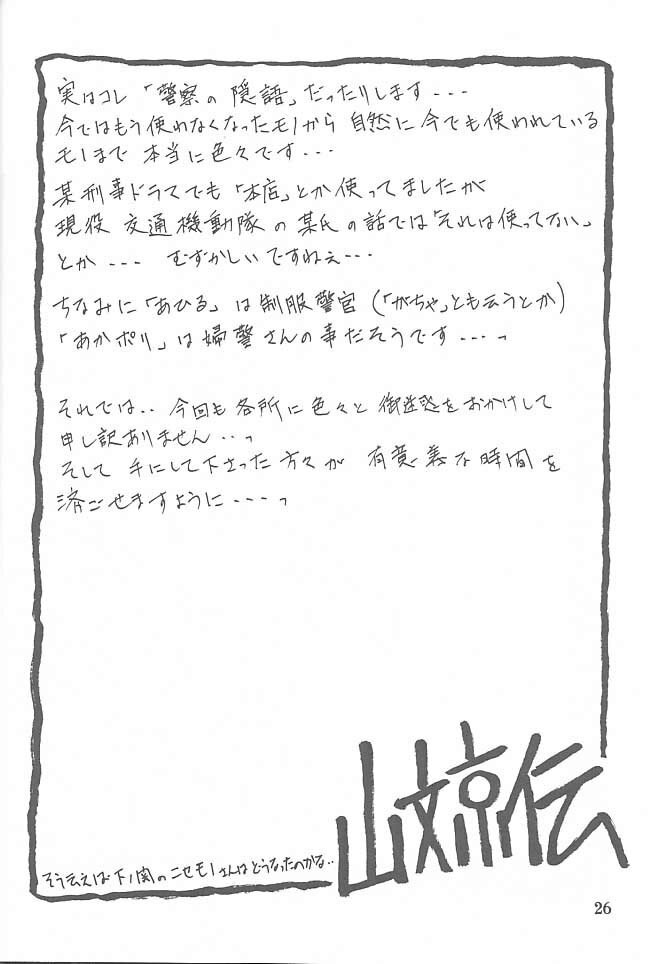 実はコレ「警察の隠語」だったりします---
今ではもう使わなくなったモノから 自然に今でも使われている
モノまで 本当に色々です---
某刑事ドラマでも「本店」とか使ってましたが
現役 交通機動隊の某氏の話では「それは使ってない」
とか--- むずかしいですねぇ---
ちなみに「あひる」は制服警官(「がちゃ」とも云うとか)
「あかポリ」は婦警さんの事だそうです---っ
それでは.. 今回も各所に色々と御迷惑をおかけして
申し訳ありません..っ
そして 手にして下さった方々が 有意義な時間を
済ごせますように---っ
そう云えば下ノ関のニセモノさんはどうなったのかな..
山文京伝
26